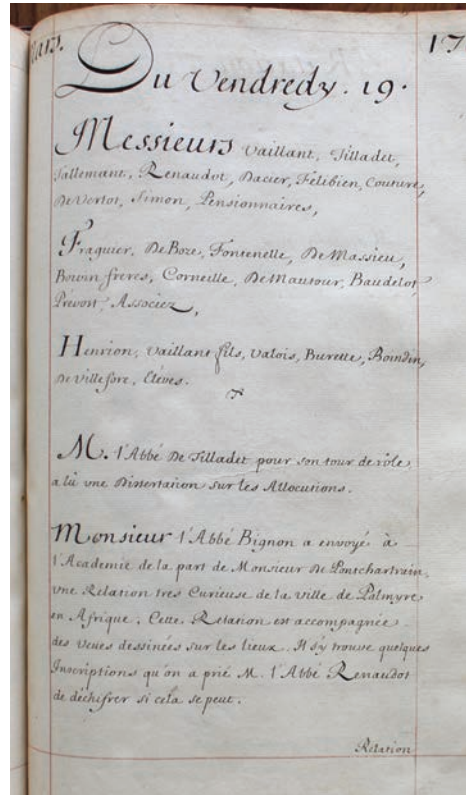 Mars.
17
Du Vendredy. 19.
Messieurs Vaillant, Tilladet,
Tallemant, Renaudot, Dacier, Felibien, Couture,
De Vertot, Simon, Pensionnaires,
Fraguier, De Boze, Fontenelle, De Massieu,
Boivin freres, Corneille, De Mautour, Baudelot,
Prevost, Associez,
Henrion, Vaillant fils, Valois, Burette, Boindin,
De Villefore, Eleves.
M. l'Abbé De Tilladet pour son tour de rôle
a lû une Dissertation sur les Allocutions.
Monsieur l'Abbé Bignon a envoyé à
l'Academie de la part de Monsieur De Pontchartrain,
vne Relation tres Curieuse de la ville de Palmyre
en Afrique. Cette Relation est accompagnée
des veues dessinées sur les lieux. Il s'y trouve quelques
Inscriptions qu'on a prié M. l'Abbé Renaudot
de déchifrer si cela se peut.
Relation